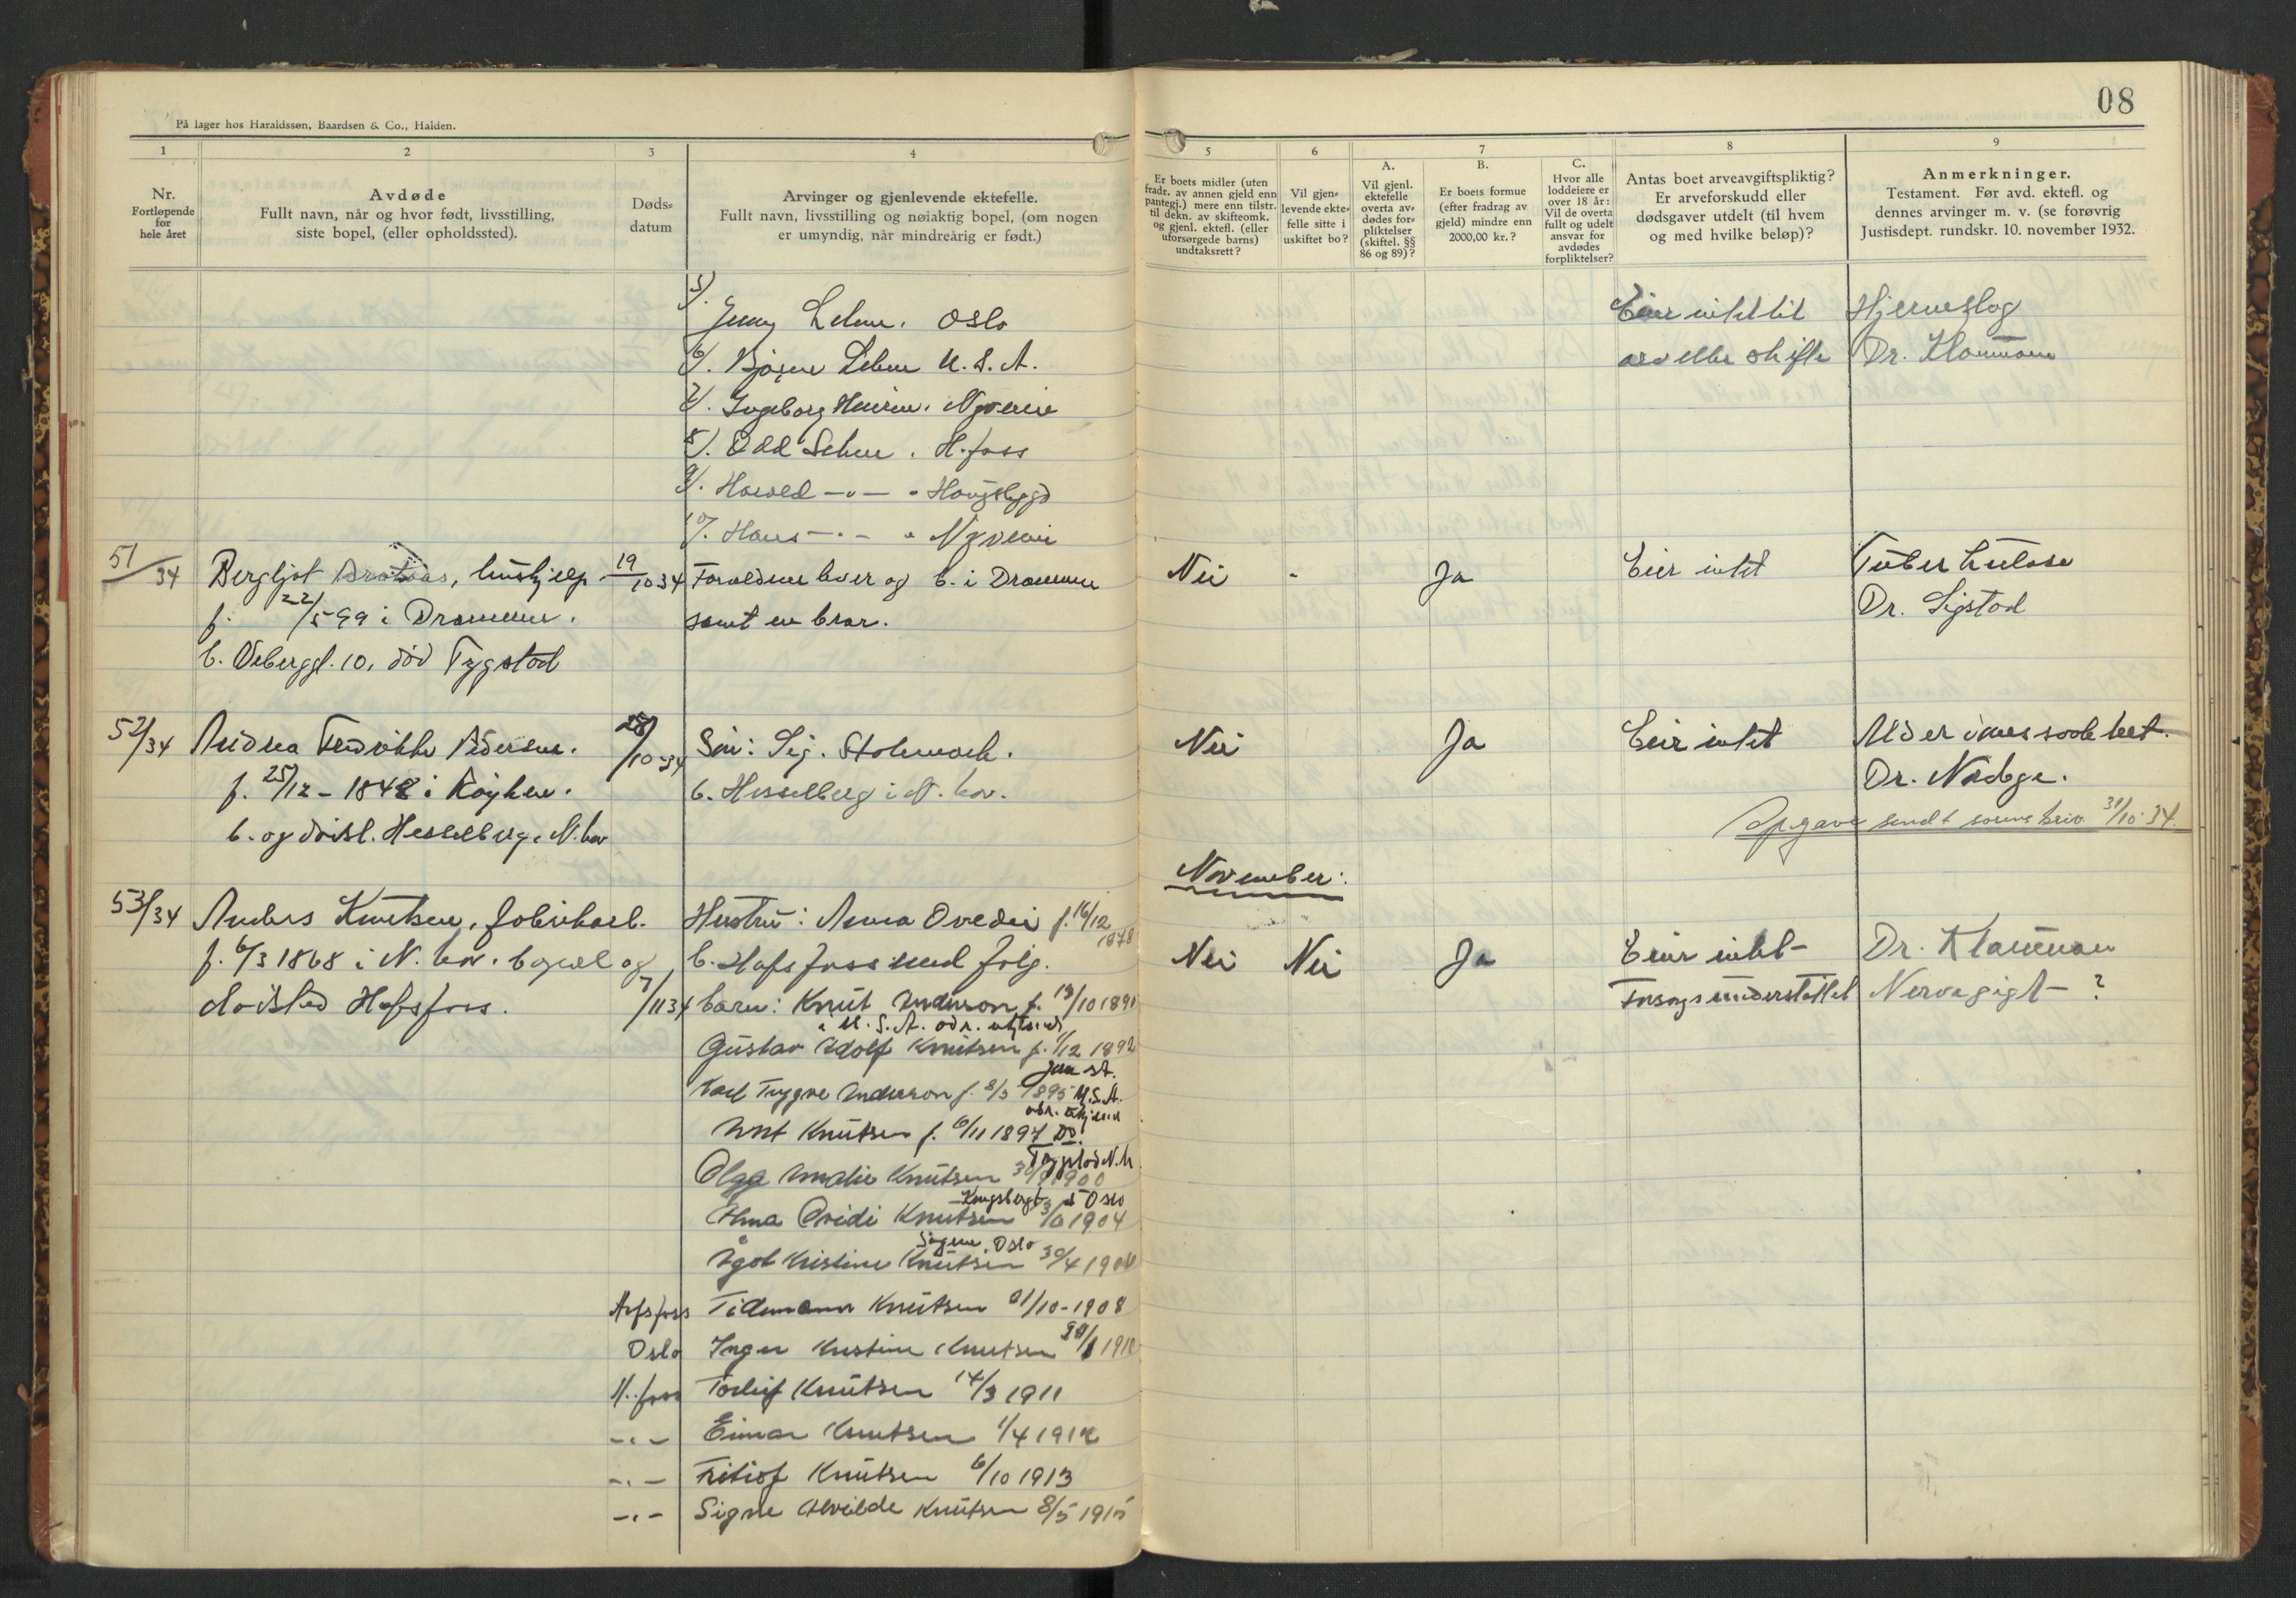 08
På lager hos Haraldssøn, Baardsen & Co., Halden.
1
2
3
4
5
6
7
8
9
Nr.
Fortløpende
for
hele året
Avdøde
Fullt navn, når og hvor født, livsstilling,
siste bopel, (eller opholdssted).
Døds-
datum
Arvinger og gjenlevende ektefelle.
Fullt navn, livsstilling og nøiaktig bopel, (om nogen
er umyndig, når mindreårig er født.)
Er boets midler (uten
fradr. av annen gjeld enn
pantegj.) mere enn tilstr.
til dekn. av skifteomk.
og gjenl. ektefl. (eller
uforsørgede barns)
undtaksrett?
Vil gjen-
levende ekte-
felle sitte i
uskiftet bo?
A.
Vil gjenl.
ektefelle
overta av-
dødes for-
pliktelser
(skiftel. §§
86 og 89)?
B.
Er boets formue
(efter fradrag av
gjeld) mindre enn
2000,00 kr.?
C.
Hvor alle
loddeiere er
over 18 år:
Vil de overta
fullt og udelt
ansvar for
avdødes
forpliktelser?
Antas boet arveavgiftspliktig?
Er arveforskudd eller
dødsgaver utdelt (til hvem
og med hvilke beløp)?
Anmerkninger.
Testament. Før avd. ektefl. og
dennes arvinger m. v. (se forøvrig
Justisdept. rundskr. 10. november 1932.
5/.
Jenny Lehne. Oslo
6/. Bjarne Lehne U.S.A.
7/. Ingeborg
8/. Odd Lehne. H.foss
9/. Harald -"- . Haugsbygd
10/. Hans -"-
Eier intet til
arv eller skifte
Hjerneslag
Dr. Klouman
51/34
Bergljot, hushjelp
f. 22/5 99 i Drammen.
b. 10, død Tygstad
19/10 34
Foreldrene lever og b. i Drammen
samt en bror.
Nei
-
Ja
Eier intet
Tuberkulose
Dr. Sigstad
52/34
Andrea Fredrikke Pedersen.
f. 25/12 - 1848 i Røyken.
b. og dødsst. Hesselberg i N.hov
28/10-34
Søn: Sig. Stolemark.
b. Hesselberg i N. hov.
Nei
Ja
Eier intet
Alderdomssvakhet.
Dr. Nedge.
Opgave sendt sorenskriv 31/10-34.
November:
53/34
Anders Knutsen, fabrikarb.
f. 6/3 1868 i N. hov. bopel og
dødsted Hofsfoss.
7/11 34
Hustru: Anna Ovedie f. 16/12
1878
b. Hofsfoss med følg.
barn: Knut Anderson f. 13/10 1890
i U.S.A. adr. ukjend
Gustav Adolf Knutsen f. 1/12 1892
st.
Karl Trygve Anderson f. 8/5 1895 U.S.A.
adr. ukjend
Knutsen f. 6/11 1897 Do.
Tyggestad N.h.
Olga Amalie Knutsen 30/ 1900
Kongsbergt. Oslo
Alma Ovidi Knutsen 3/ 1904
Sogene, Oslo
Ågot Kristine Knutsen 30/4 190
Hofsfoss Tidemann Knutsen 01/10-1908
Oslo Inger Kristine Knutsen 191
H.foss Torleif Knutsen 14/3 1911
-"- Einar Knutsen 1/4 1912
-"- Fritiof Knutsen 6/10 1913
-"- Signe Alvilde Knutsen 8/5 1915
Nei
Nei
Ja
Eier intet
Forsorgsunderstøttet
Dr. Klouman
Nervegigt - ?